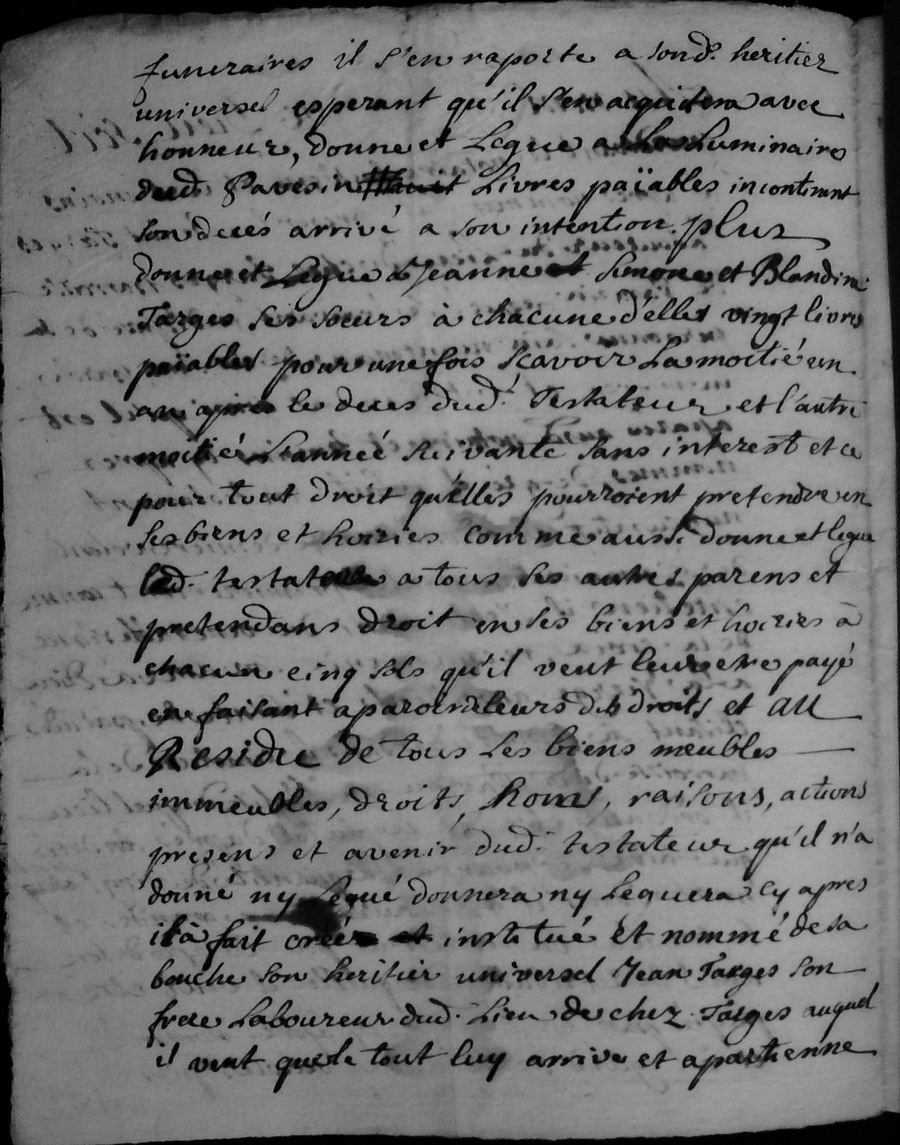 funeraires il s'en raporte a sond. heritier
universel esperant qu'il s'en acquitera avec
honneur, donne et Legue a Luminaires
dud. Pavesin huit Livres païables incontinant
son decés arrivé a son intention. plus
donne et Legue a Jeanne et Simone et Blandine
Targes ses soeurs à chacune d'elles vingt livres
païables pour une fois scavoir La moitié un
an apres le deces dud. Testateur et l'autre
moitié L'année suivante sans interest et ce
pour tout droit qu'elles pourroient pretendre en
ses biens et hoiries comme aussi donne et legue
led. testateur a tous ses autres parens et
pretendans droit en ses biens et hoiries à
chacun cinq sols qu'il veut leur etre payé
en faisant aparoir de leurs dts droits et au
Residu de tous Les biens meubles
immeubles, droits, noms, raisons, actions
presens et avenir dud. testateur qu'il n'a
donné ny Legué donnera ny Leguera cy apres
il à fait créé et institué et nommé de sa
bouche son heritier universel Jean Targes son
frere Laboureur dud. Lieu de chez Targes auquel
il veut que le tout luy arrive et apartienne